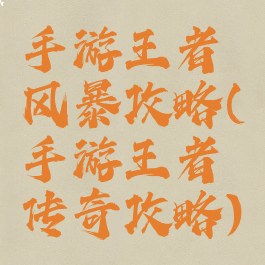 手游王者
风暴攻略(
手游王者
传奇攻略)